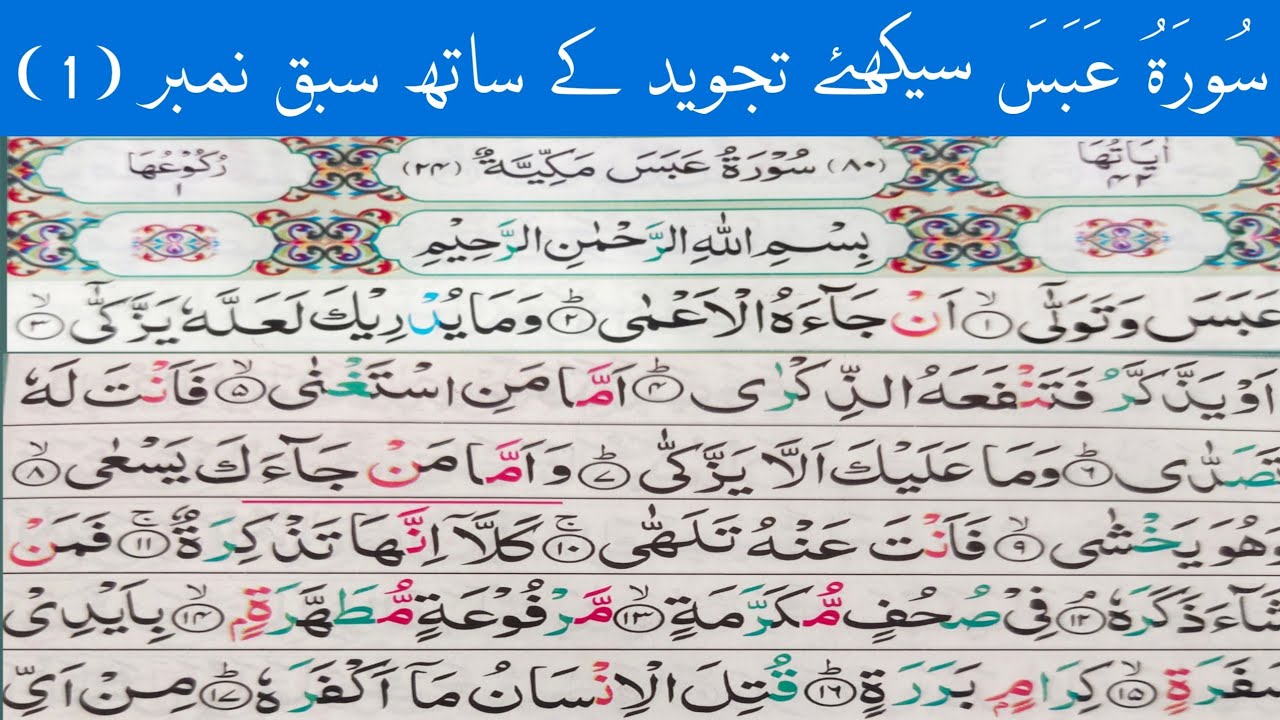 سُورَةُ عَبَسَ سیکھئے تجوید کے ساتھ سبق نمبر (1)
اٰيَاتُهَا ٤٢ (٨٠) سُوْرَةُ عَبَسَ مَكِّيَّةٌ (٢٤) رُكُوْعُهَا ١
بِسْمِ اللّٰهِ الرَّحْمٰنِ الرَّحِيْمِ
عَبَسَ وَتَوَلّٰٓى ۙ﴿١﴾ اَنْ جَآءَهُ الْاَعْمٰى ؕ﴿٢﴾ وَمَا يُدْرِيْكَ لَعَلَّهٗ يَزَّكّٰٓى ۙ﴿٣﴾
اَوْ يَذَّكَّرُ فَتَنْفَعَهُ الذِّكْرٰى ؕ﴿٤﴾ اَمَّا مَنِ اسْتَغْنٰى ۙ﴿٥﴾ فَاَنْتَ لَهٗ
تَصَدّٰى ؕ﴿٦﴾ وَمَا عَلَيْكَ اَلَّا يَزَّكّٰى ؕ﴿٧﴾ وَاَمَّا مَنْ جَآءَكَ يَسْعٰى ۙ﴿٨﴾
وَهُوَ يَخْشٰى ۙ﴿٩﴾ فَاَنْتَ عَنْهُ تَلَهّٰى ۚ﴿١٠﴾ كَلَّآ اِنَّهَا تَذْكِرَةٌ ۚ﴿١١﴾ فَمَنْ
شَآءَ ذَكَرَهٗ ۘ﴿١٢﴾ فِيْ صُحُفٍ مُّكَرَّمَةٍ ۙ﴿١٣﴾ مَّرْفُوْعَةٍ مُّطَهَّرَةٍۭ ۙ﴿١٤﴾ بِاَيْدِيْ
سَفَرَةٍ ۙ﴿١٥﴾ كِرَامٍۭ بَرَرَةٍ ؕ﴿١٦﴾ قُتِلَ الْاِنْسَانُ مَآ اَكْفَرَهٗ ؕ﴿١٧﴾ مِنْ اَيِّ